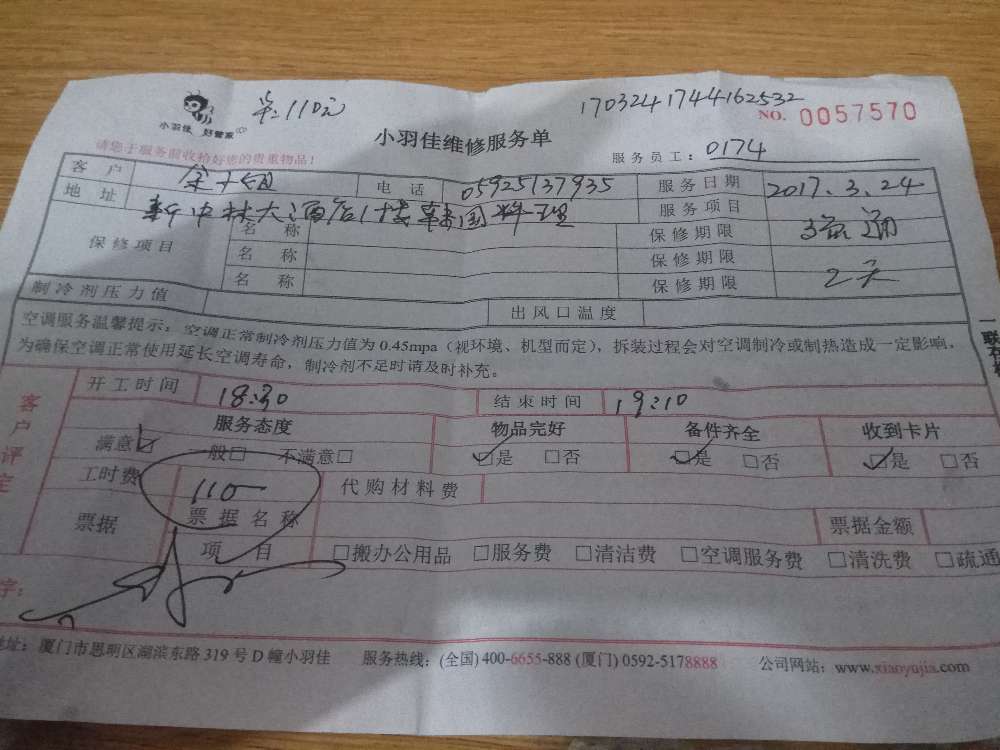 110元
1703241744162532
小羽佳 好管家
小羽佳维修服务单
NO. 0057570
请您于服务前收拾好您的贵重物品!
服务员工: 0174
客户 电话 05925137935 服务日期 2017.3.24
地址 大酒店1楼韩国料理 服务项目
保修项目 名称 保修期限 疏通
名称 保修期限
名称 保修期限 2天
制冷剂压力值 出风口温度
空调服务温馨提示:空调正常制冷剂压力值为0.45mpa(视环境、机型而定),拆装过程会对空调制冷或制热造成一定影响,
为确保空调正常使用延长空调寿命,制冷剂不足时请及时补充。
开工时间 18:30 结束时间 19:10
客户评定
服务态度 物品完好 备件齐全 收到卡片
满意☑ 一般□ 不满意□ ☑是 □否 ☑是 □否 ☑是 □否
工时费 110 代购材料费
票据 票据名称 票据金额
项目 □搬办公用品 □服务费 □清洁费 □空调服务费 □清洗费 □疏通
字:
地址:厦门市思明区湖滨东路319号D幢小羽佳 服务热线:(全国)400-6655-888 (厦门)0592-5178888 公司网站:www.xiaoyujia.com